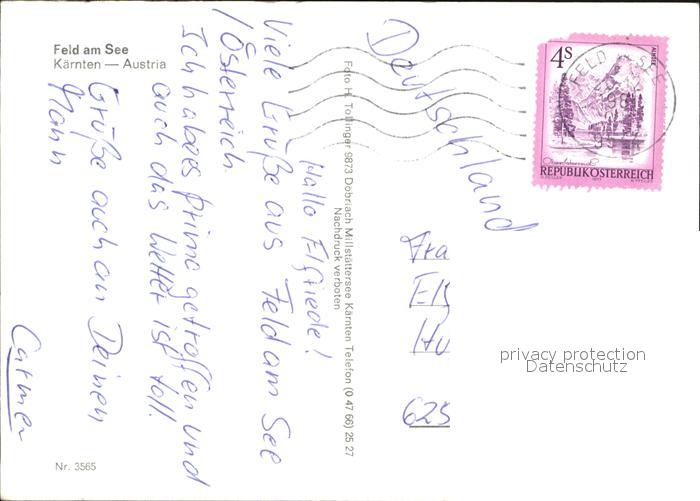 Feld am See
Kärnten — Austria
Hallo Elfriede!
Viele Grüße aus Feld am See
/Österreich
Ich habes prima getroffen und
auch das Wetter ist toll!
Grüße auch an Deinen
Mann
Carmen
Nr. 3565
Foto H. Tollinger 9873 Döbriach Millstättersee Kärnten Telefon (0 47 66) 25 27
Nachdruck verboten
Deutschland
4S
ALMSEE
REPUBLIK ÖSTERREICH
FELD SEE
Fra
Elf
Hu
625
privacy protection
Datenschutz